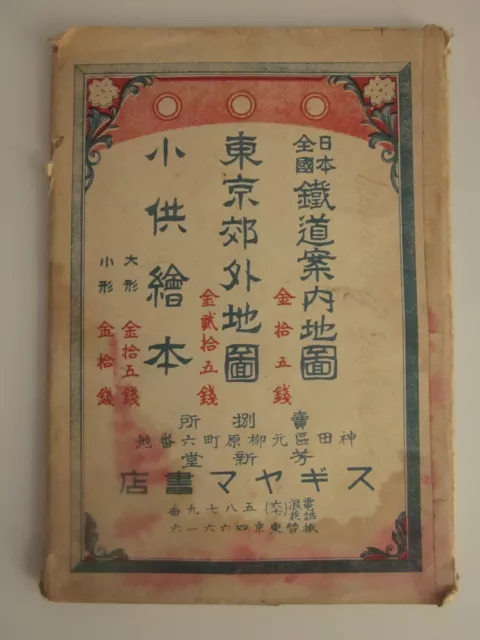 日本全國鐵道案内地圖
金拾五錢
東京郊外地圖
金貳拾五錢
小供繪本
大形 金拾五錢
小形 金拾錢
賣捌所
神田區元柳原町六番地
芳新堂
スギヤマ書店
電話浪花(六七)五八七九番
振替東京四六六一六